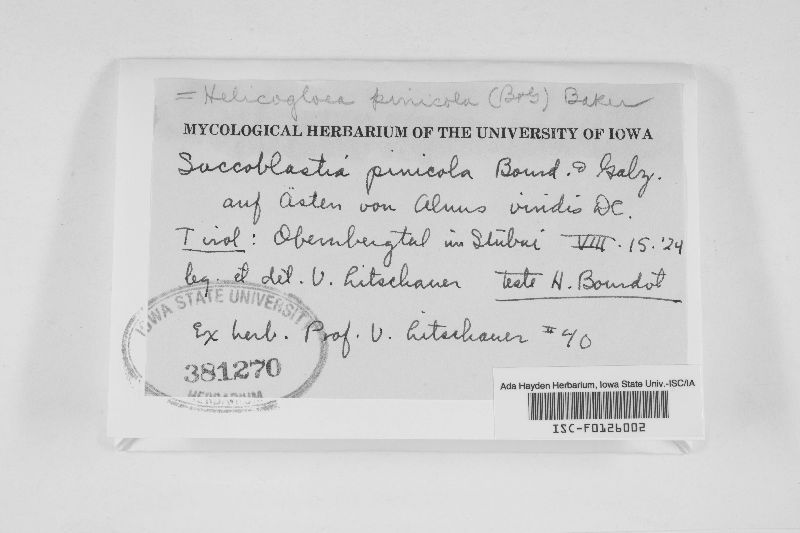 = Helicogloea pinicola (B&G) Baker
MYCOLOGICAL HERBARIUM OF THE UNIVERSITY OF IOWA
Saccoblastia pinicola Bourd. & Galz.
auf Ästen von Alnus viridis DC.
Tirol: Obernbergtal im Stubai VIII. 15. '24
leg. et det. V. Litschauer Teste H. Bourdot
Ex herb. Prof. V. Litschauer # 40
IOWA STATE UNIVERSITY
381270
HERBARIUM
Ada Hayden Herbarium, Iowa State Univ.-ISC/IA
ISC-F0126002